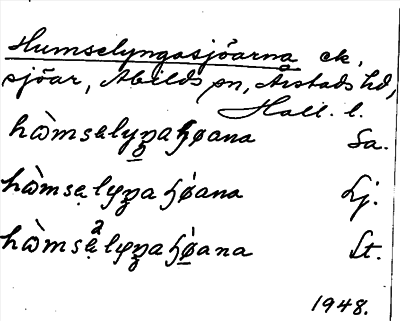 Humselyngasjöarna ek,
sjöar, Abilds sn, Årstads hd,
Hall. l.
hɷ̀msəlyŋaɧøana Sa.
hɷ̀msəlyŋaɧøana Lj.
hɷ̀msəlyŋaɧøana St.
1948.